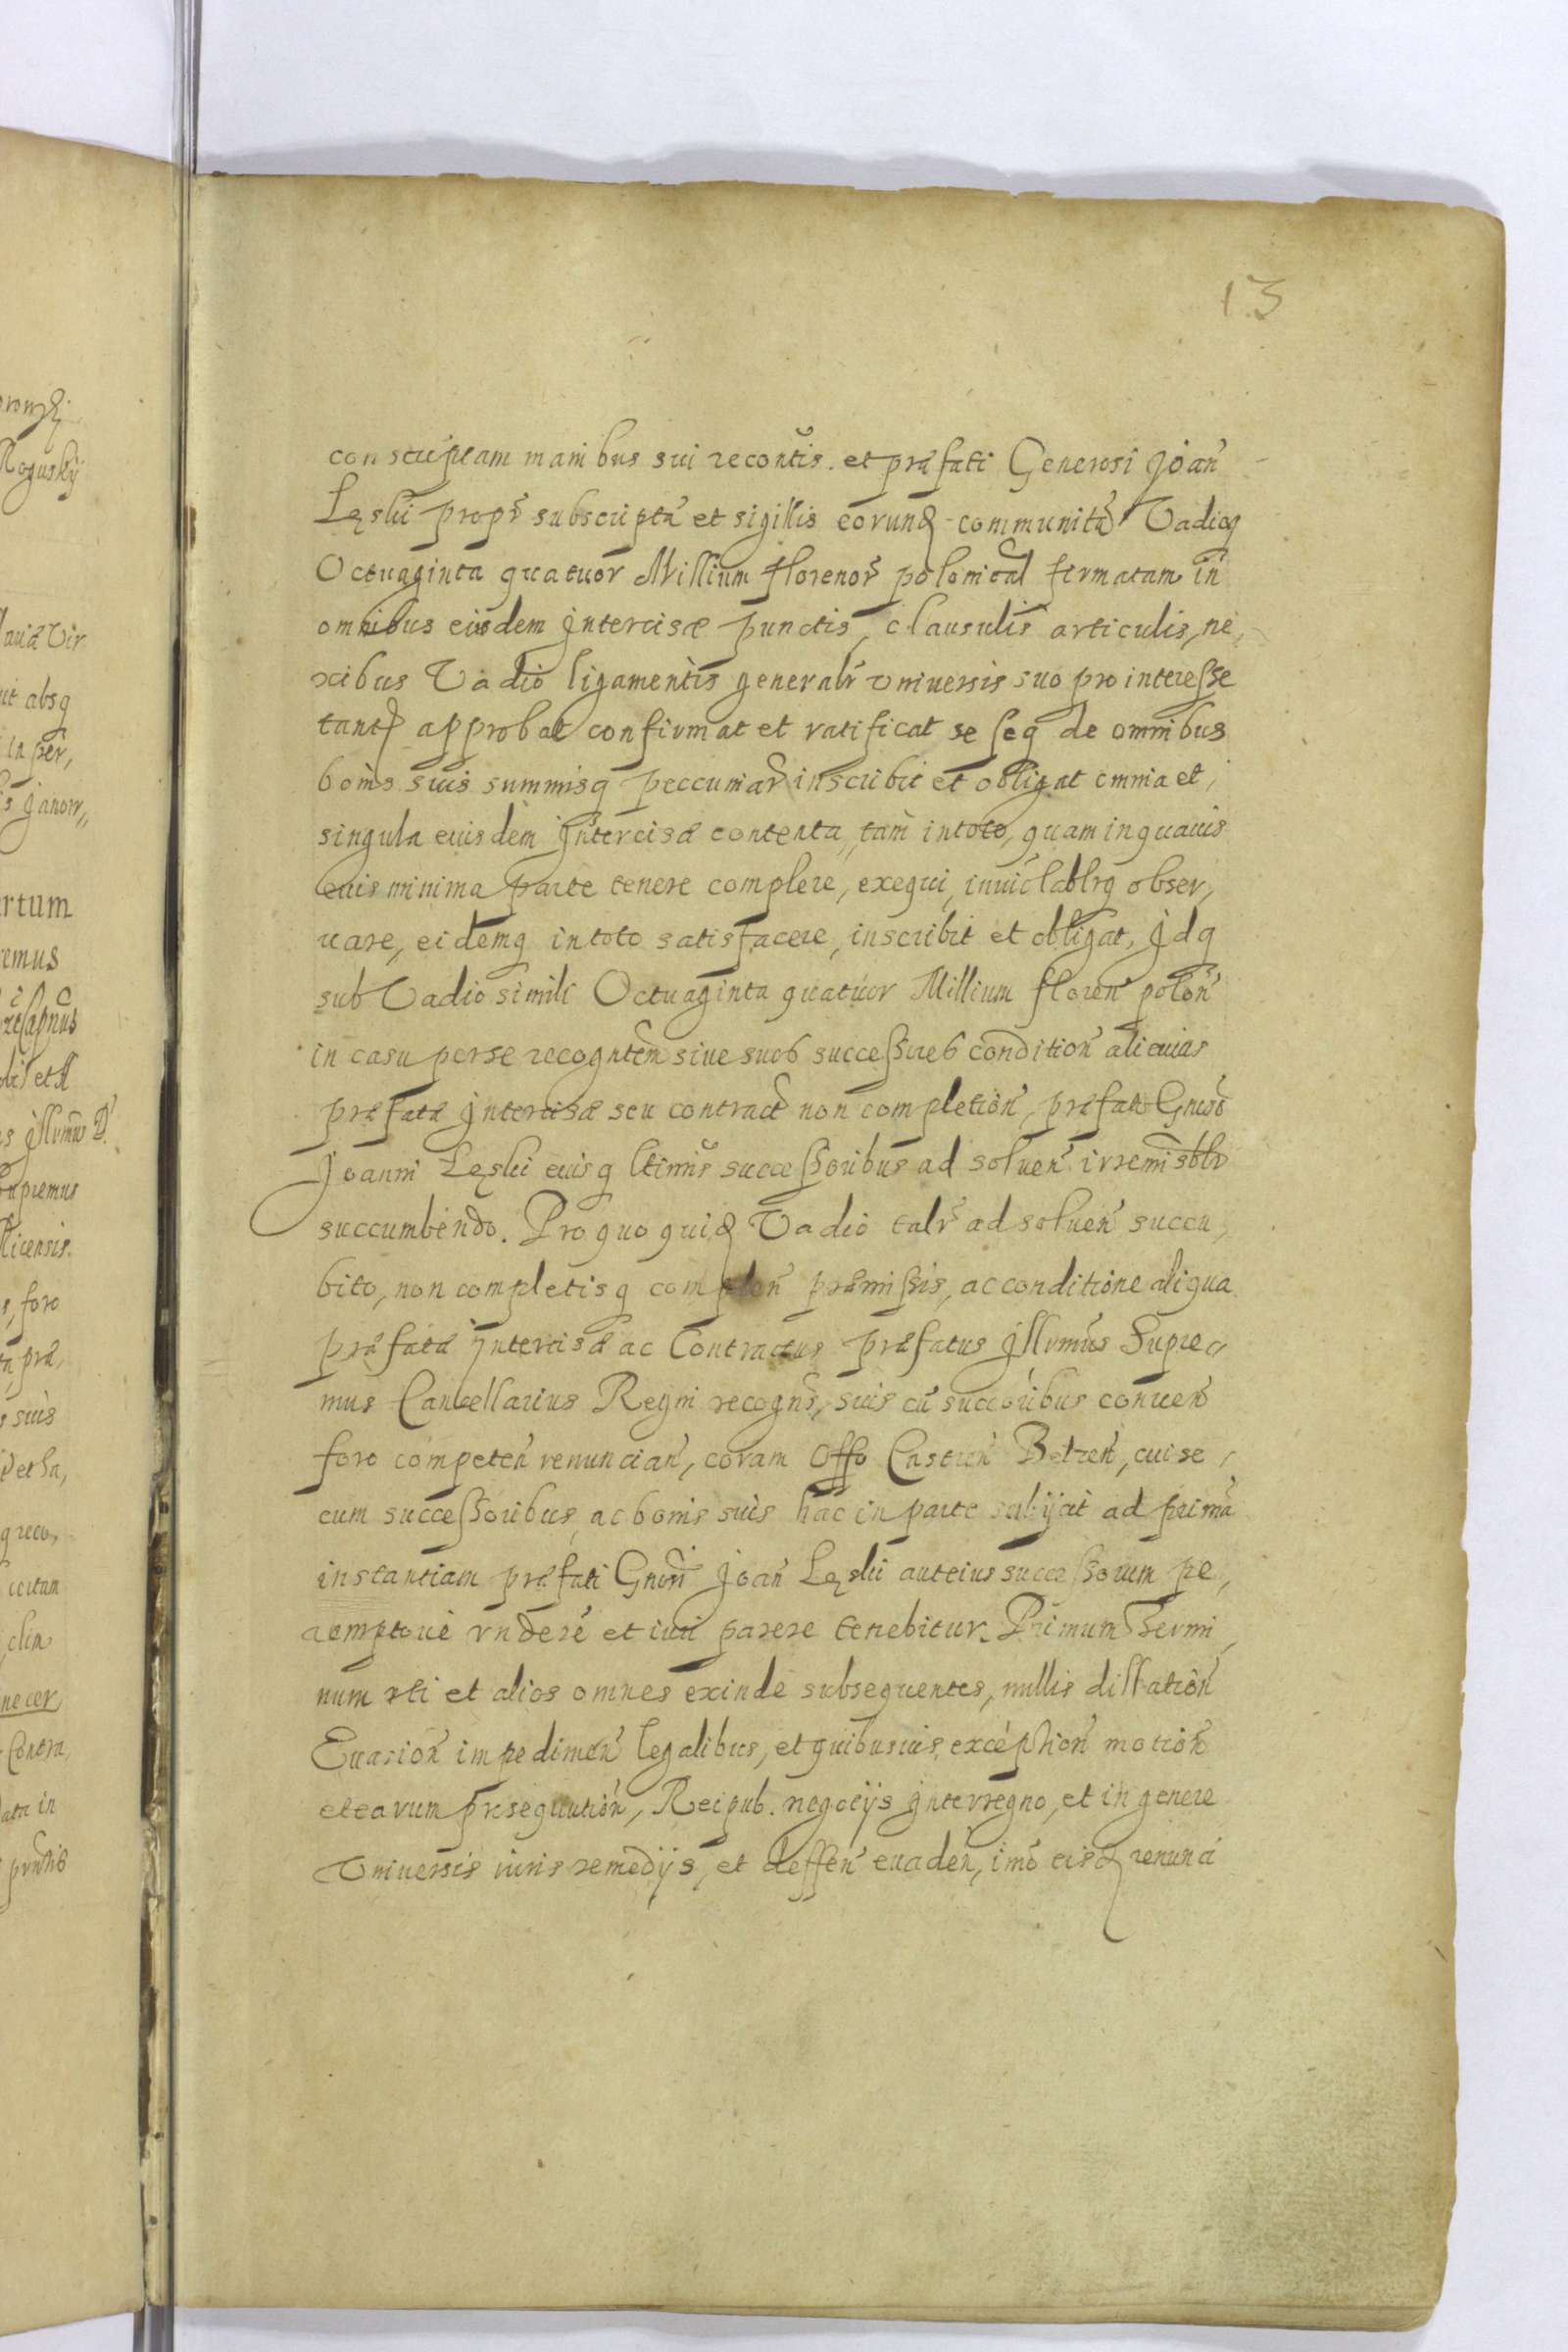 13
conscriptam manibus sui recontis. et præfati Generosi Joan
Lęski propr subscripta et sigillis eorund communita Vadioq
Octuaginta quatuor Millium florenor polonical firmatam in
omnibus eiusdem Intercisæ punctis, clausulis articulis, ne,
xibus Vadio ligamentis generalr vniuersis suo pro interesse
tantū approbat confirmat et ratificat se seq de omnibus
bonis suis summisq peccuniar inscribit et obligat omnia et,
singula eiusdem Intercisæ contenta, tam in toto, quam in quauis
euis minima parte tenere complere, exequi, inuiolablrq obser,
uare, eidemq in toto satisfacere, inscribit et obligat, Jdq
sub Vadio simili Octuaginta quatuor Millium floren polon
in casu per se recognten siue suos successores condition alicuius
præfatæ Intercisæ seu contract non completion, præfato Gnoso
Joanni Lęski euisq ltimis successoribus ad soluen irremisblr
succumbendo. Pro quo quid Vadio talr ad soluen succu,
bito, non completisq complen præmissis, ac conditione aliqua
præfatæ Intercisæ ac Contractus præfatus Jllvmus Supre,
mus Cancellarius Regni recogns, suis cū succoribus conuen
foro competen renuncian, coram Offo Castren Belzen, cui se,
cum successoribus, ac bonis suis hac in parte subijcit ad prima
instantiam præfati Gnosi Joan Lęski aut eius successorum pe,
remptorie rndere et iuri parere tenebitur. Primum Termi,
num rti et alios omnes exinde subsequentes, nullis dillation
Euasion impedimen legalibus, et quibusuis exception motion
et earum prosequution, Reipub. negocijs Interregno, et in genere
Vniuersis iuris remedijs, et deffen euaden, imo eisd renunci